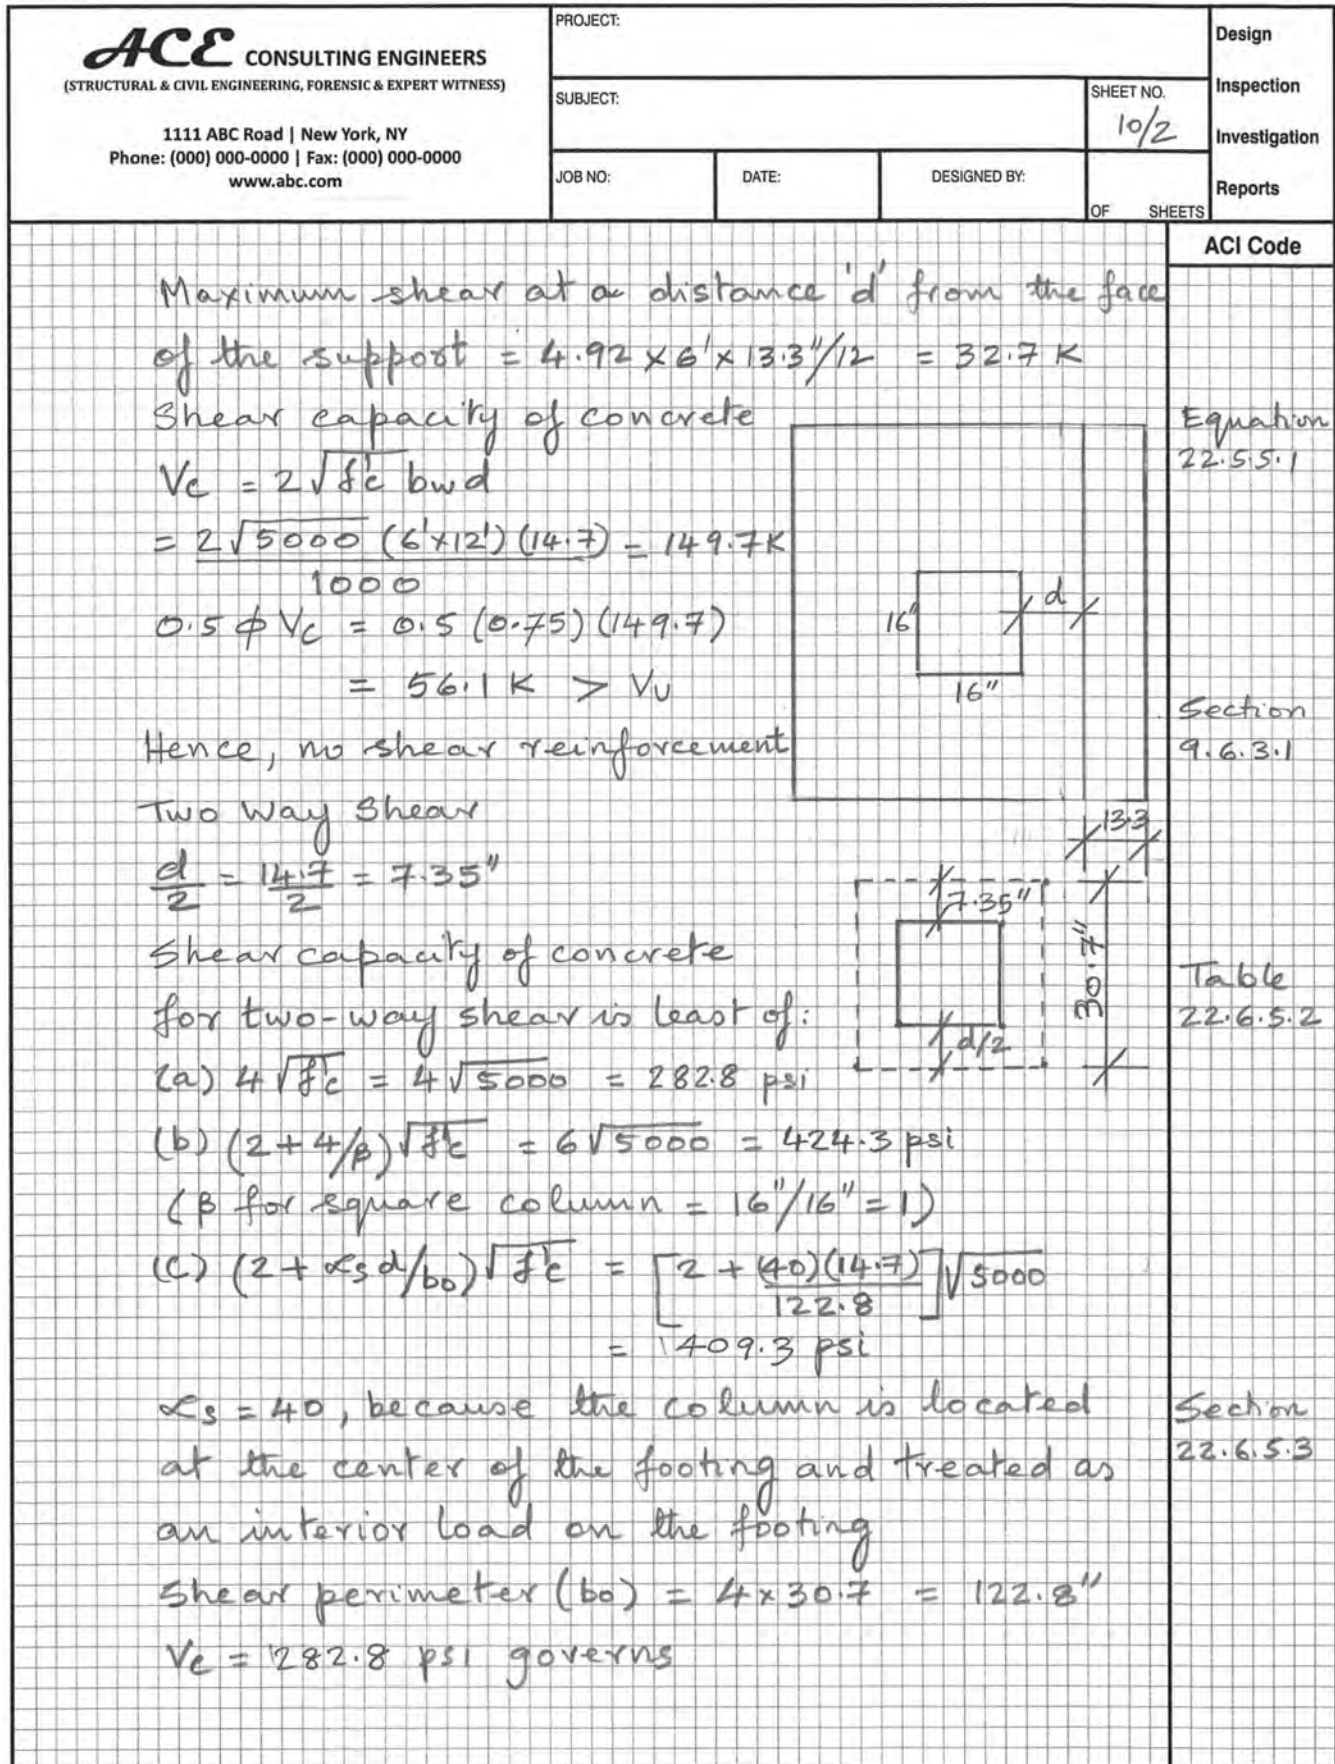 ACE CONSULTING ENGINEERS
(STRUCTURAL & CIVIL ENGINEERING, FORENSIC & EXPERT WITNESS)
1111 ABC Road | New York, NY
Phone: (000) 000-0000 | Fax: (000) 000-0000
www.abc.com
PROJECT:
SUBJECT:
SHEET NO.
10/2
JOB NO:
DATE:
DESIGNED BY:
OF SHEETS
Design
Inspection
Investigation
Reports
ACI Code
Maximum shear at a distance 'd' from the face
of the support = 4.92 x 6' x 13.3"/12 = 32.7 K
Shear capacity of concrete
Equation
22.5.5.1
Vc = 2√f'c bwd
= 2√5000 (6'x12') (14.7) = 149.7K
1000
0.5 φ Vc = 0.5 (0.75) (149.7)
= 56.1 K > Vu
16"
16"
d
Section
9.6.3.1
Hence, no shear reinforcement
Two Way Shear
13.3
d/2 = 14.7/2 = 7.35"
7.35"
30.7"
d/2
Shear capacity of concrete
for two-way shear is least of:
Table
22.6.5.2
(a) 4√f'c = 4√5000 = 282.8 psi
(b) (2 + 4/β)√f'c = 6√5000 = 424.3 psi
(β for square column = 16"/16" = 1)
(c) (2 + αs d/bo)√f'c = [2 + (40)(14.7)/122.8]√5000
= 409.3 psi
αs = 40, because the column is located
Section
22.6.5.3
at the center of the footing and treated as
an interior load on the footing
Shear perimeter (bo) = 4 x 30.7 = 122.8"
Vc = 282.8 psi governs